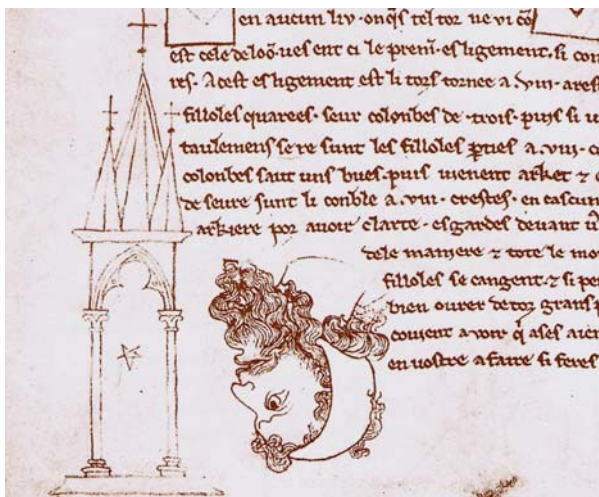 en aucun liv · onq̄s tel tor ne vi cō
est cele de loō · ves ent ci le prem̄ · esligement · si com
res · A cest esligement est li tors tornee a · viii · arest
filloles quarees · seur colonbes de · trois · puis si v
taulemens se re sunt les filloles p̄ties a · viii · co
colonbes saut uns bues · puis vienent arket ⁊ e
de seure sunt li conble a · viii · crestes · en cascun
arkiere por avoir clarte · esgardes devant ū
de le maniere ⁊ tote le mo
filloles se cangent · ⁊ si pen
bien ovrer de toz grans p
covient avoir q̄ ases aien
en vostre afaire si feres